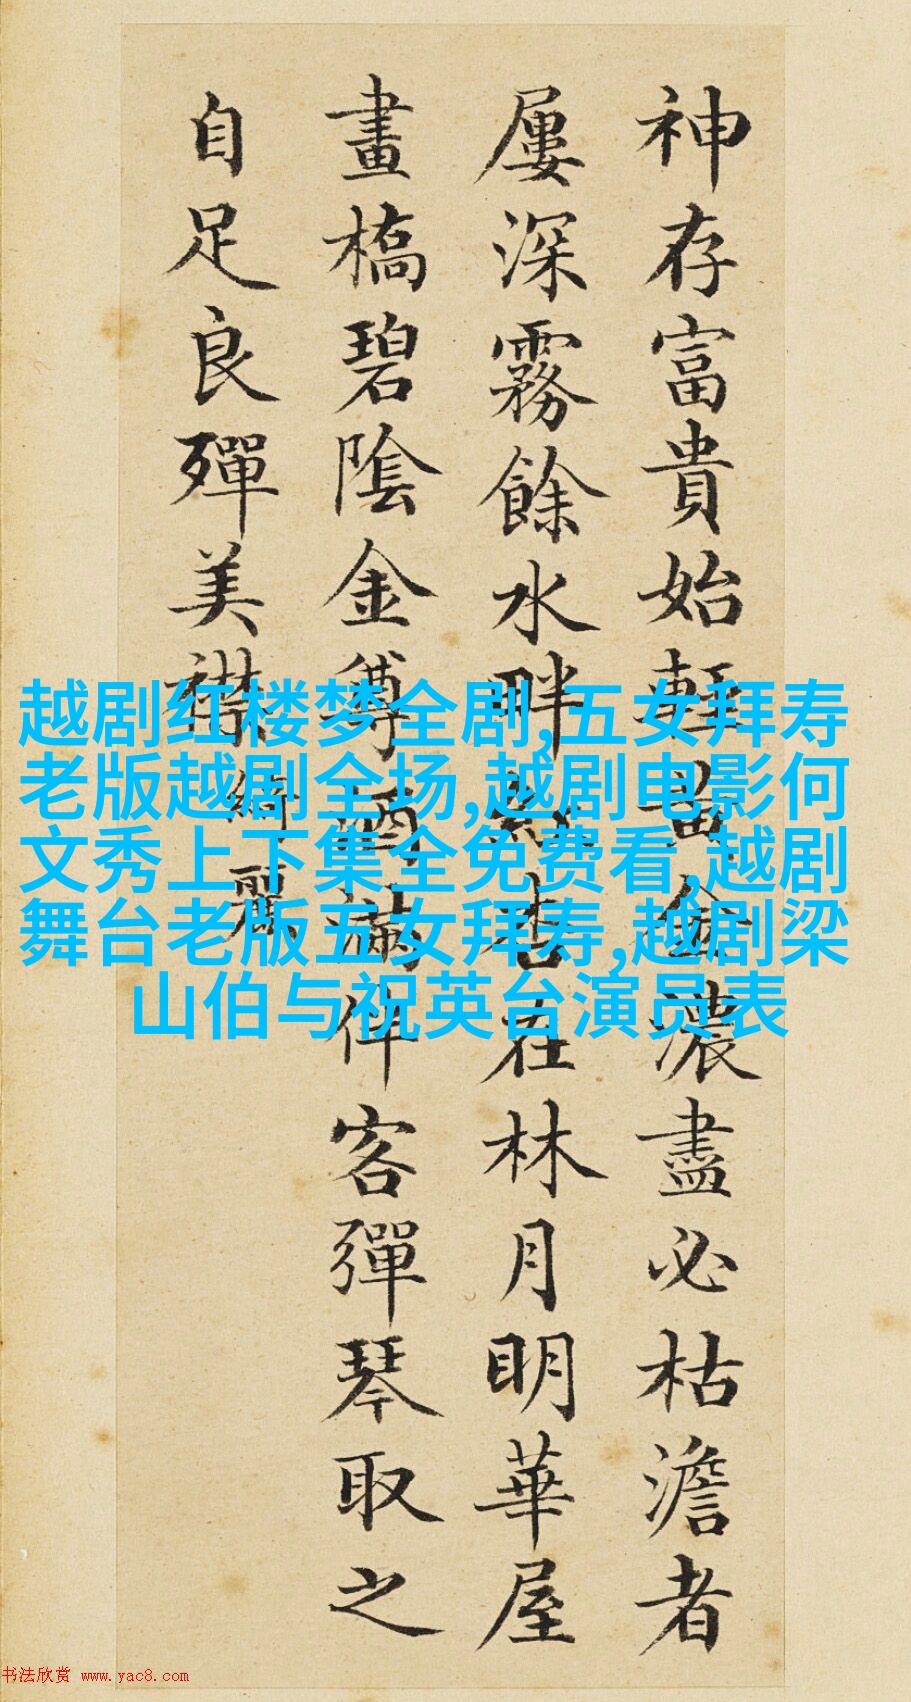 神存富貴始輕黃金濃盡必枯澹者
屢深霧餘水畔紅杏在林月明華屋
畫橋碧陰金酒滿伴客彈琴取之
自足良殫美襟
綺麗
越剧红楼梦全剧,五女拜寿
老版越剧全场,越剧电影何
文秀上下集全免费看,越剧
舞台老版五女拜寿,越剧梁
山伯与祝英台演员表
书法欣赏 www.yac8.com